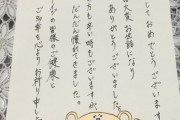 しておめでとうございます
大変お世話になり
ありがとうございました
方も寒い時もございますが、
だんだん慣れてきました
の皆様のご健康と
ご多幸を心よりお祈り申し